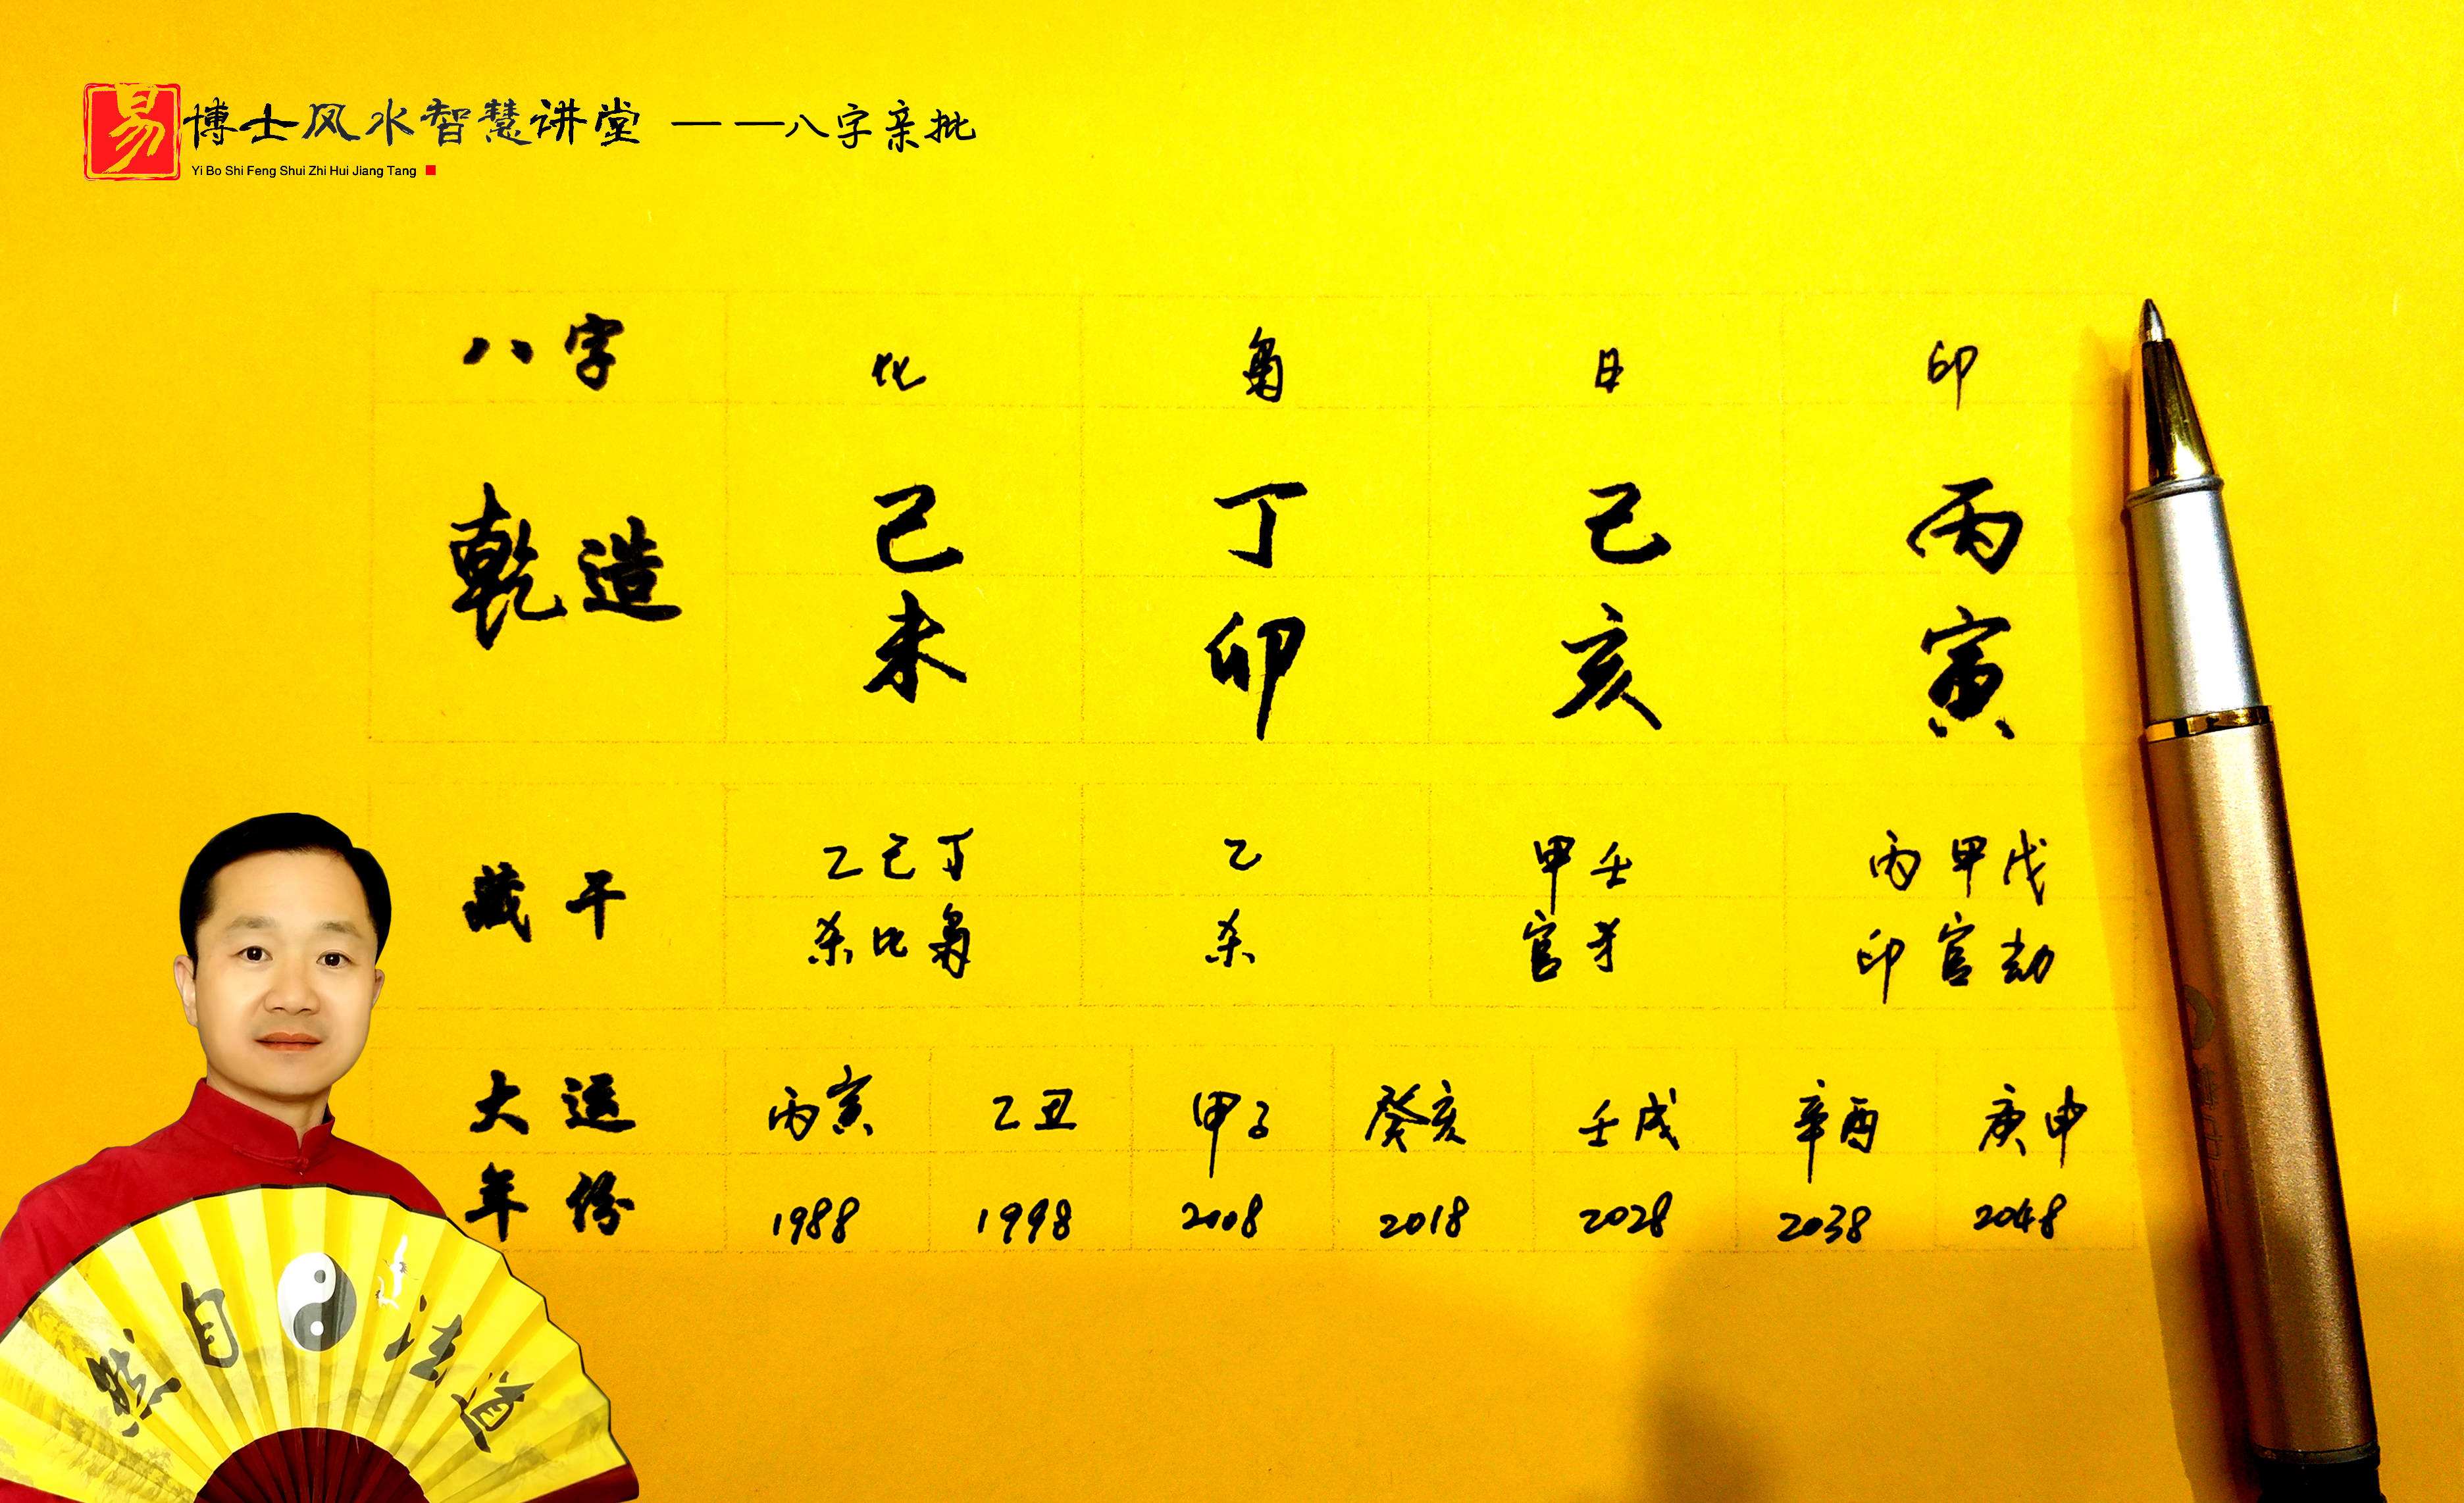 易 博士风水智慧讲堂 ——八字亲批
Yi Bo Shi Feng Shui Zhi Hui Jiang Tang
八字 比 枭 日 印
乾造 己 丁 己 丙
未 卯 亥 寅
藏干 乙己丁 乙 甲壬 丙甲戊
杀比枭 杀 官才 印官劫
大运 丙寅 乙丑 甲子 癸亥 壬戌 辛酉 庚申
年份 1988 1998 2008 2018 2028 2038 2048
道法自然